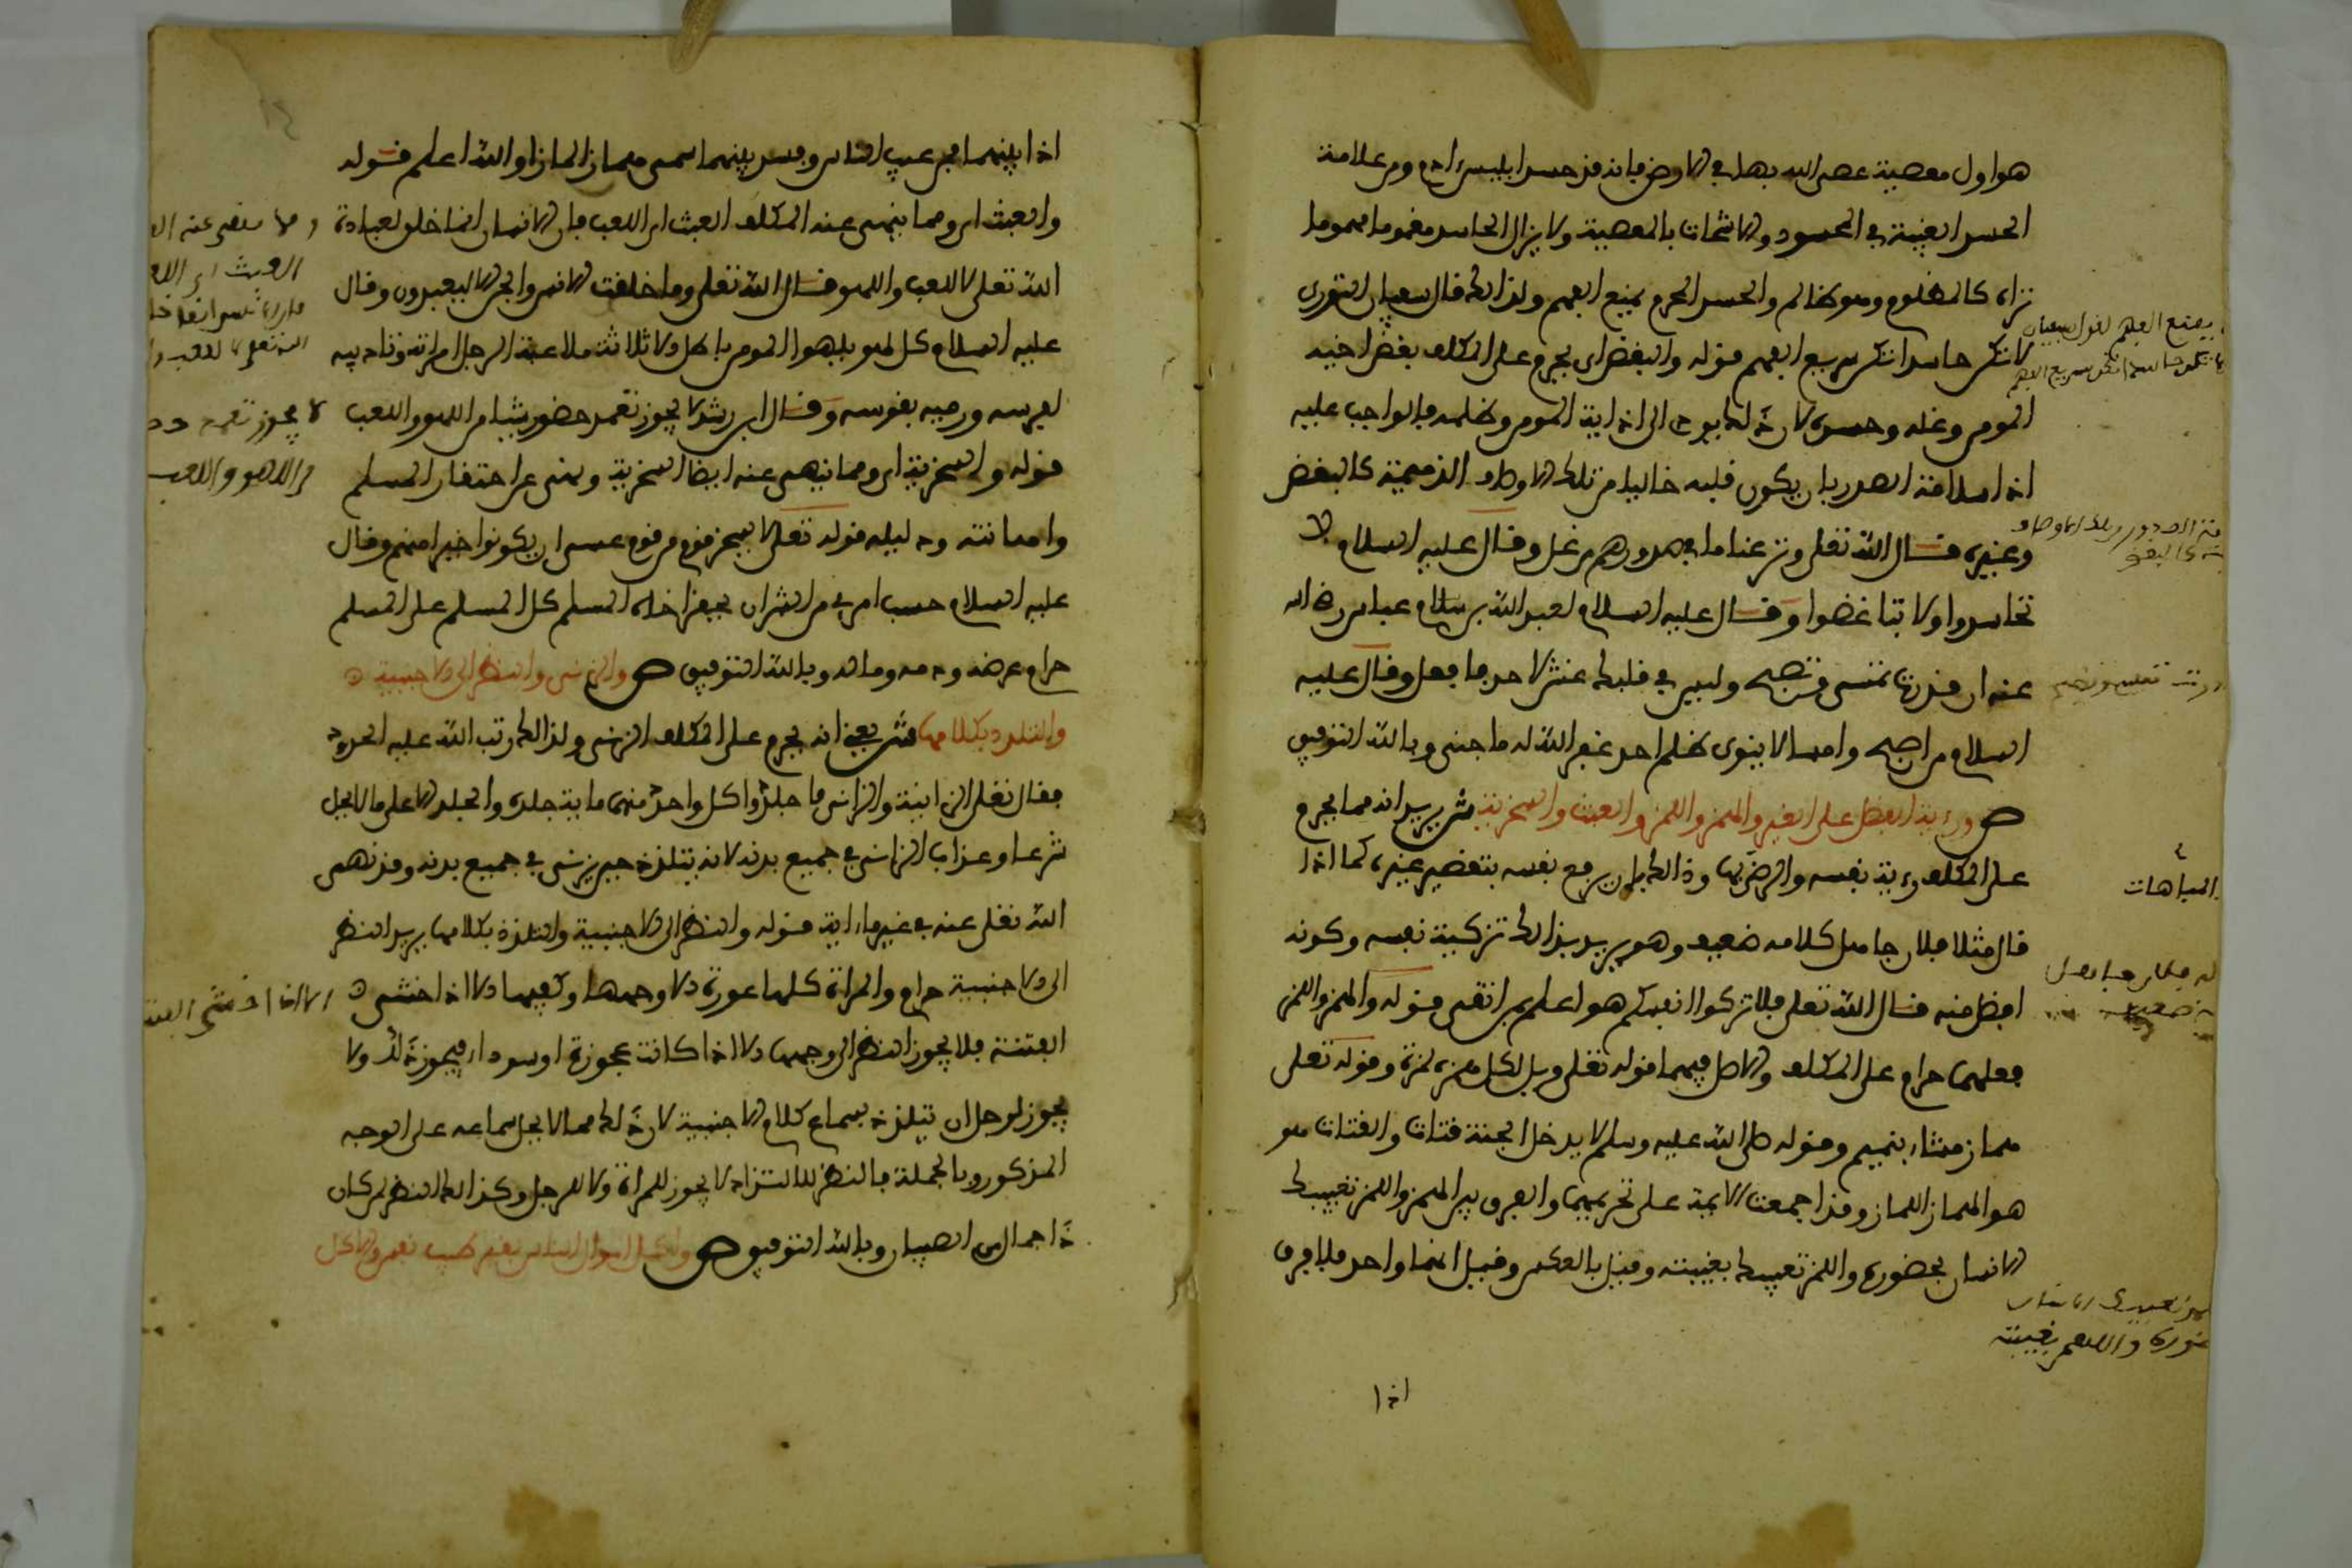 هو اول معصية عصى الله بها في الارض فانه قد حسد ابليس ادم ومن علامة
الحسد الغيبة في المحسود والاشمات بالمعصية ولا يزال الحاسد مغموما مهموما
تراه كالمظلوم وهو ظالم والحسد المحرم يمنع الفهم ولذالك قال سفيان الثوري
لا تكن حاسدا تكن سريع الفهم قوله والبغض اي يحرم على المكلف بغض اخيه
المومن وغله وحسده لان ذلك يودي الى اذاية المومن وظلمه فالواجب عليه
اذا سلامة الصدر بان يكون قلبه خاليا من تلك الاوصاف الذميمة كالبغض
وغيره قال الله تعلى ونزعنا ما في صدورهم من غل وقال عليه السلام لا
تحاسدوا ولا تباغضوا وقال عليه السلام لعبد الله بن عباس رضي الله
عنه ان قدرت تمسى وتصبح وليس في قلبك غش لاحد فافعل وقال عليه
السلام من اصبح وامسا لا ينوي ظلم احد غفر الله له ما جنى وبالله التوفيق
ص ورءية الفضل على الغير والهمز واللمز والعبث والسخرية ش يريد انه مما يحرم
على المكلف رءية نفسه والرضى بها وذالك بان يرفع نفسه بتنقيص غيره كما اذا
قال مثلا فلان جاهل كلامه ضعيف وهو يريد بذالك تزكية نفسه وكونه
افضل منه قال الله تعلى فلا تزكوا انفسكم هو اعلم بمن اتقى قوله والهمز واللمز
فعلهما حرام على المكلف والاصل فيهما قوله تعلى ويل لكل همزة لمزة وقوله تعلى
هماز مشاء بنميم وقوله صلى الله عليه وسلم لا يدخل الجنة فتات والفتات هو
هو الهماز اللماز وقد اجمعت الايمة على تحريمهما والفرق بين الهمز واللمز تعييبك
الانسان بحضوره واللمز تعييبك بغيبته وقيل بالعكس وقيل انهما واحد فلا فرق
اذا
يمنع الفهم لقول سفيان
لا تكن حاسدا تكن سريع الفهم
المباهات
بحضوره واللمز بغيبته
اذا بينهما فمن عيب الناس وفسد بينهما سمي هماز لماز والله اعلم قوله
والعبث اي ومما ينهى عنه المكلف العبث اي اللعب فان الانسان انما خلق لعبادة
الله تعلى لا للعب واللهو قال الله تعلى وما خلقت الانس والجن الا ليعبدون وقال
عليه السلام كل لهو يلهو المومن باطل الا ثلاثة ملاعبة الرجل امراته وتاديبه
لفرسه ورميه بقوسه وقال ابن رشد لا يجوز تعمد حضور شيئا من اللهو واللعب
قوله والسخرية اي ومما ينهى عنه ايضا السخرية وهي احتقار المسلم
واهانته ودليله قوله تعلى لا يسخر قوم من قوم عسى ان يكونوا خيرا منهم وقال
عليه السلام حسب امرئ من الشر ان يحقر اخاه المسلم كل المسلم على المسلم
حرام عرضه ودمه وماله وبالله التوفيق ص والزنى والنظر الى الاجنبية
والتلذذ بكلامها ش يعني انه يحرم على المكلف الزنى ولذالك رتب الله عليه الحدود
فقال تعلى الزانية والزاني فاجلدوا كل واحد منهما ماية جلدة والجلد الا على ما لا يحل
شرعا وعذاب الزاني في جميع بدنه لانه يتلذذ حين يزني في جميع بدنه وقد نهى
الله تعلى عنه في غير ما ءاية قوله والنظر الى الاجنبية والتلذذ بكلامها يريد النظر
الى الاجنبية حرام والمراة كلها عورة الا وجهها وكفيها الا اذا خشي
الفتنة فلا يجوز النظر الى وجهها الا اذا كانت عجوزة او سوداء فيجوز ذلك ولا
يجوز لرجل ان يتلذذ بسماع كلام الاجنبية لان ذلك مما لا يحل سماعه على الوجه
المذكور وبالجملة فالنظر للالتذاذ لا يجوز للمراة ولا للرجل وكذالك النظر لمن كان
ذا جمال من الصبيان وبالله التوفيق ص واكل اموال الناس بغير طيب نفس والاكل
العبث اي اللعب
لا يجوز تعمد
من اللهو واللعب
الا اذا خشي الفتنة